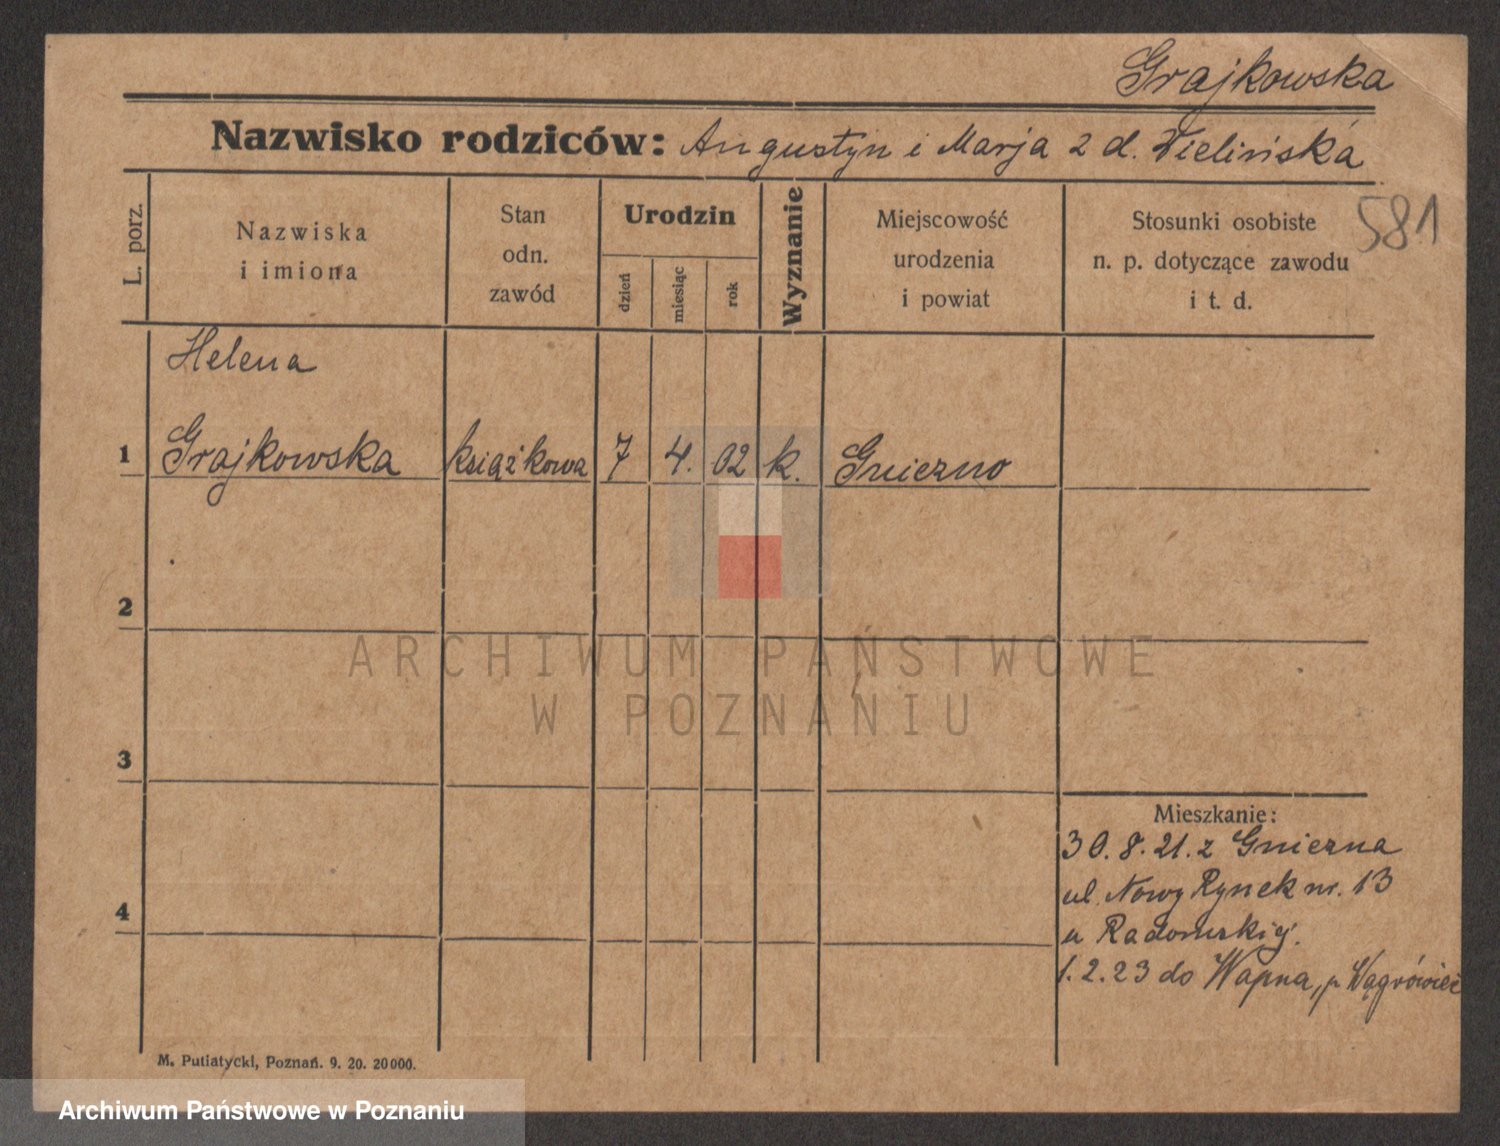 Grajkowska
Nazwisko rodziców: Augustyn i Marja 2 d. Wielińska
581
L. porz.
Nazwiska
i imiona
Stan
odn.
zawód
Urodzin
dzień
miesiąc
rok
Wyznanie
Miejscowość
urodzenia
i powiat
Stosunki osobiste
n. p. dotyczące zawodu
i t. d.
Helena
1 Grajkowska książkowa 7 4. 02 k. Gniezno
2
3
4
Mieszkanie:
30.8.21. z Gniezna
ul. Nowy Rynek nr. 13
u Radomskiej.
1.2.23 do Wapna, p. Wągrówiec
M. Putiatycki, Poznań. 9. 20. 20000.
ARCHIWUM PAŃSTWOWE
W POZNANIU
Archiwum Państwowe w Poznaniu